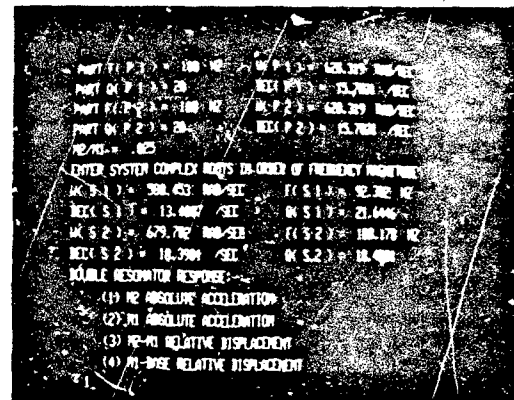 PART F( P 1 ) = 100 HZ W( P 1 ) = 628.319 RAD/SEC
PART Q( P 1 ) = 20 DEC( P 1 ) = 15.7080 /SEC
PART F( P 2 ) = 100 HZ W( P 2 ) = 628.319 RAD/SEC
PART Q( P 2 ) = 20 DEC( P 2 ) = 15.7080 /SEC
M2/M1 = .025
ENTER SYSTEM COMPLEX ROOTS IN ORDER OF FREQUENCY MAGNITUDE
W( S 1 ) = 580.453 RAD/SEC F( S 1 ) = 92.382 HZ
DEC( S 1 ) = 13.4087 /SEC Q( S 1 ) = 21.6446
W( S 2 ) = 679.702 RAD/SEC F( S 2 ) = 108.178 HZ
DEC( S 2 ) = 18.3904 /SEC Q( S 2 ) =
DOUBLE RESONATOR RESPONSE:
(1) M2 ABSOLUTE ACCELERATION
(2) M1 ABSOLUTE ACCELERATION
(3) M2-M1 RELATIVE DISPLACEMENT
(4) M1-BASE RELATIVE DISPLACEMENT